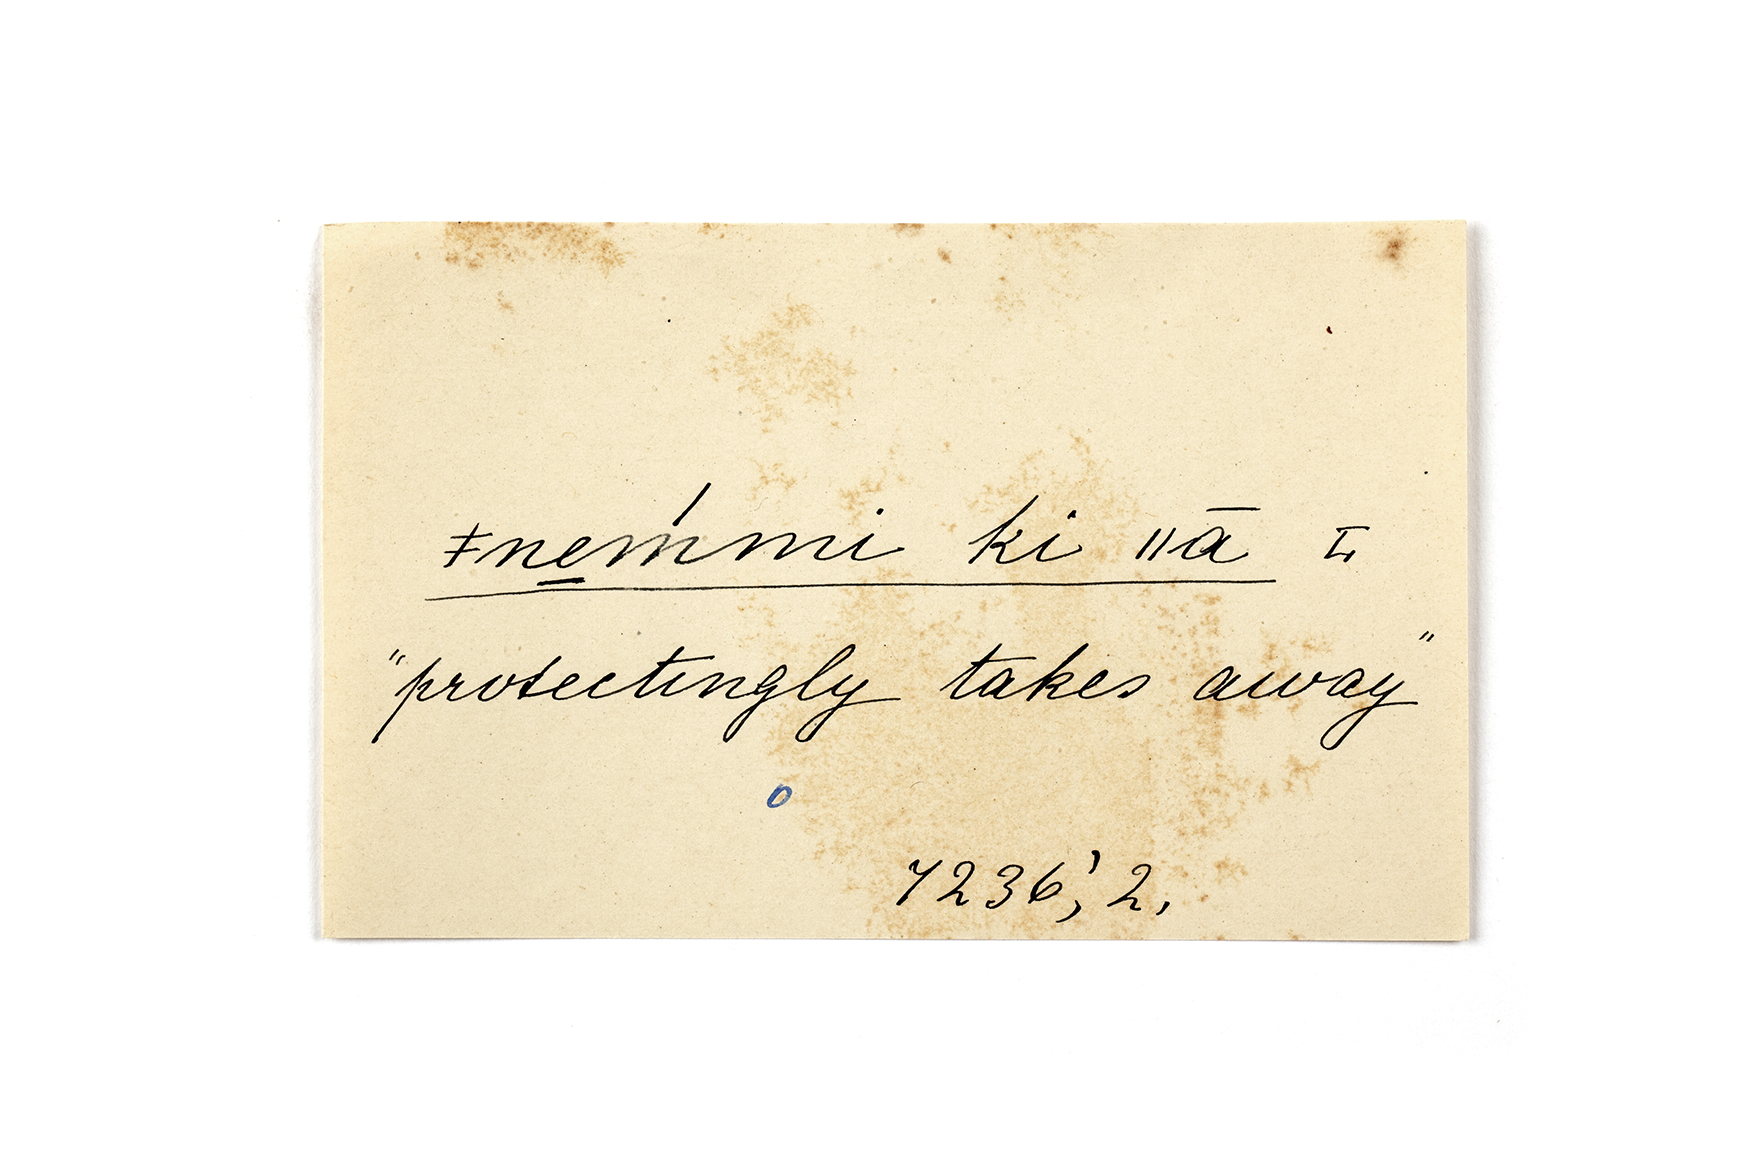 ǂne̱ḿmi ki ǁā I͟.
"protectingly takes away"
o
7236,' 2.